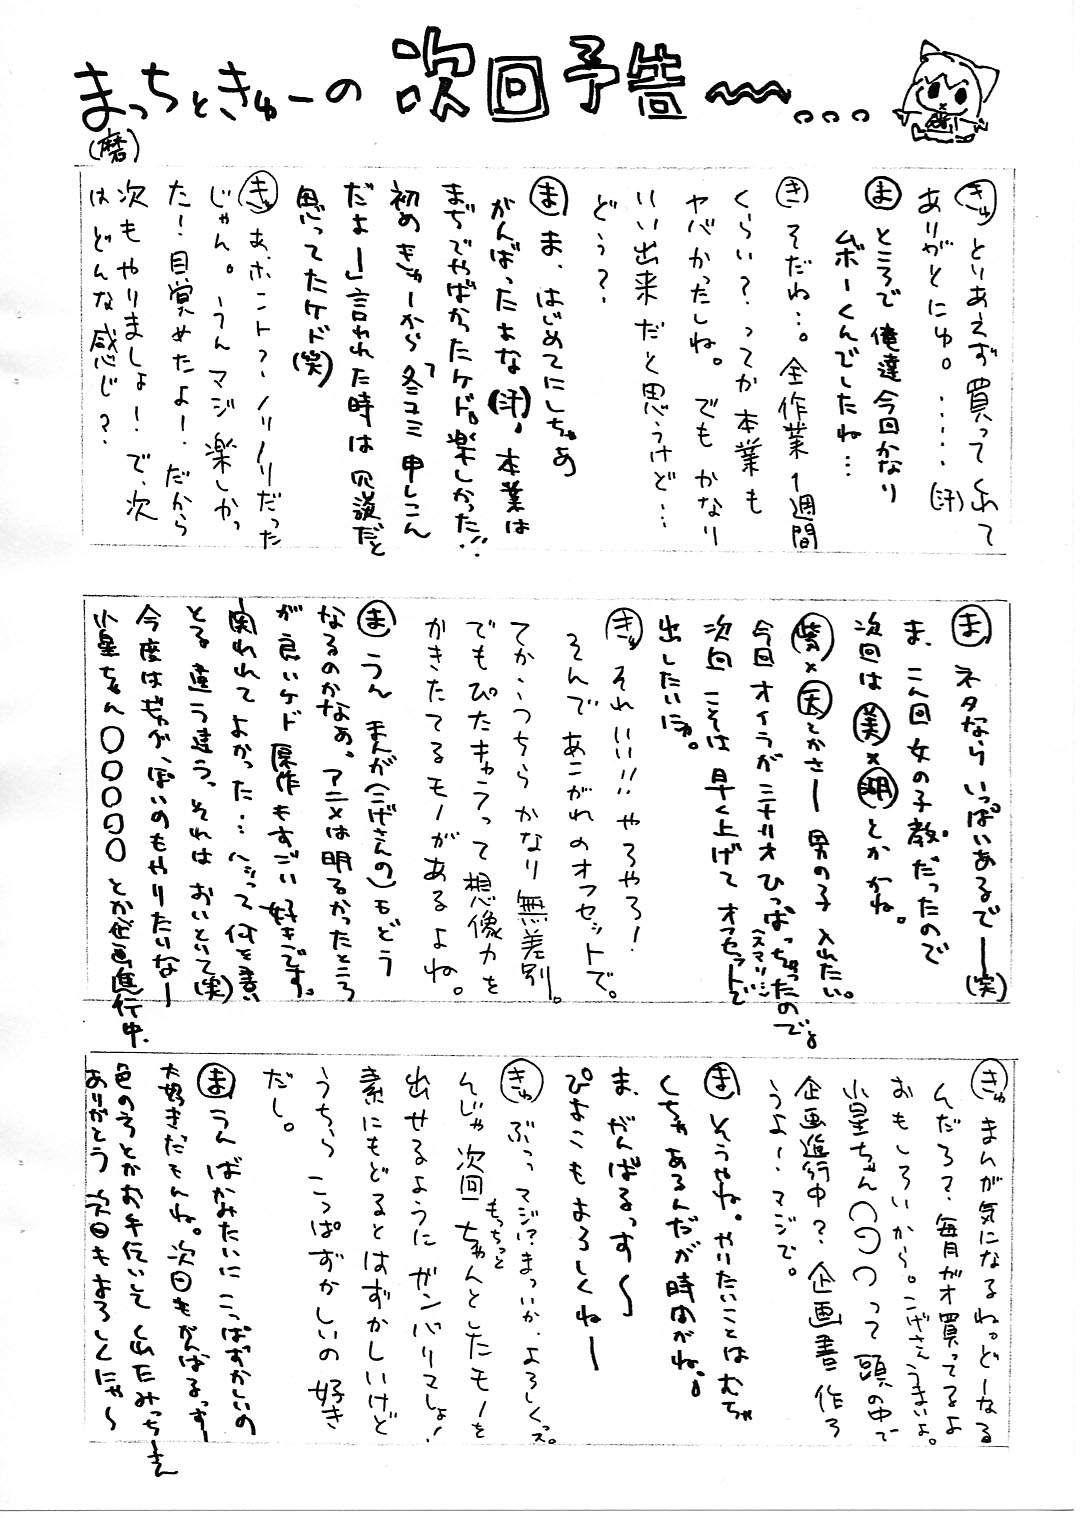 まっちときゅーの 次回予告〜〜…
(磨)
きゅ とりあえず買ってくれて
ありがとにゅ。……(汗)
ま ところで俺達今回かなり
ムボーくんでしたね…
き そだね…。全作業1週間
くらい?ってか本業も
ヤバかったしね。でもかなり
いい出来だと思うけど…
どう?
ま ま、はじめてにしちゃあ
がんばったよな(汗)。本業は
まぢでやばかったケド。楽しかった!!
初めきゅーから「冬コミ申しこん
だよー」言われた時は冗談だと
思ってたケド(笑)
きゅ あ、ホント?ノリノリだった
じゃん。うんマジ楽しかっ
たー!目覚めたよー。だから
次もやりましょ!で、次
はどんな感じ?
ま ネタならいっぱいあるでー(笑)
ま、こん回女の子教。だったので
次回は美×湖とかかね。
紫×天とかさー 男の子入れたい。
今回オイラがシナリオひっぱっちゃったので。(スマソ)
次回こそは早く上げてオフセットで
出したいにゅ。
きゅ それいい!!やろやろ!
そんであこがれのオフセットで。
てか、うちらかなり無差別。
でもぴたキャラって想像力を
かきたてるモノがあるよね。
ま うん まんが(こげさんの)もどう
なるのかなぁ。アニメは明るかったところ
が良いケド原作もすごい好きです。
実れれてよかった…へって何を書い
とる違う違うっそれはおいといて(笑)
今度はギャグっぽいのもやりたいなー
小星ちゃん○○○○○とか企画進行中.
きゅ まんが気になるねっどーなる
んだろ?毎月ガオ買ってるよ
おもしろいから。こげさんうまいよ。
小星ちゃん○○○って頭の中で
企画進行中?企画書作ろ
うよー、マジで。
ま そうやね。やりたいことはむちゃ
くちゃあるんだが時間がね。
ま、がんばるっす〜
ぴよこもよろしくねー
きゅ ぶっっマジ!?まっいか、よろしくっス。
んじゃ次回もっちっとちゃんとしたモノを
出せるようにガンバリマしょ!
素にもどるとはずかしいけど
うちらこっぱずかしいの好き
だし。
ま うん ばかみたいにこっぱずかしいの
大好きだもんね。次回もがんばるっすー
色のろとかお手伝いしてくれたみっちーさん
ありがとう 次回もよろしくにゃ〜